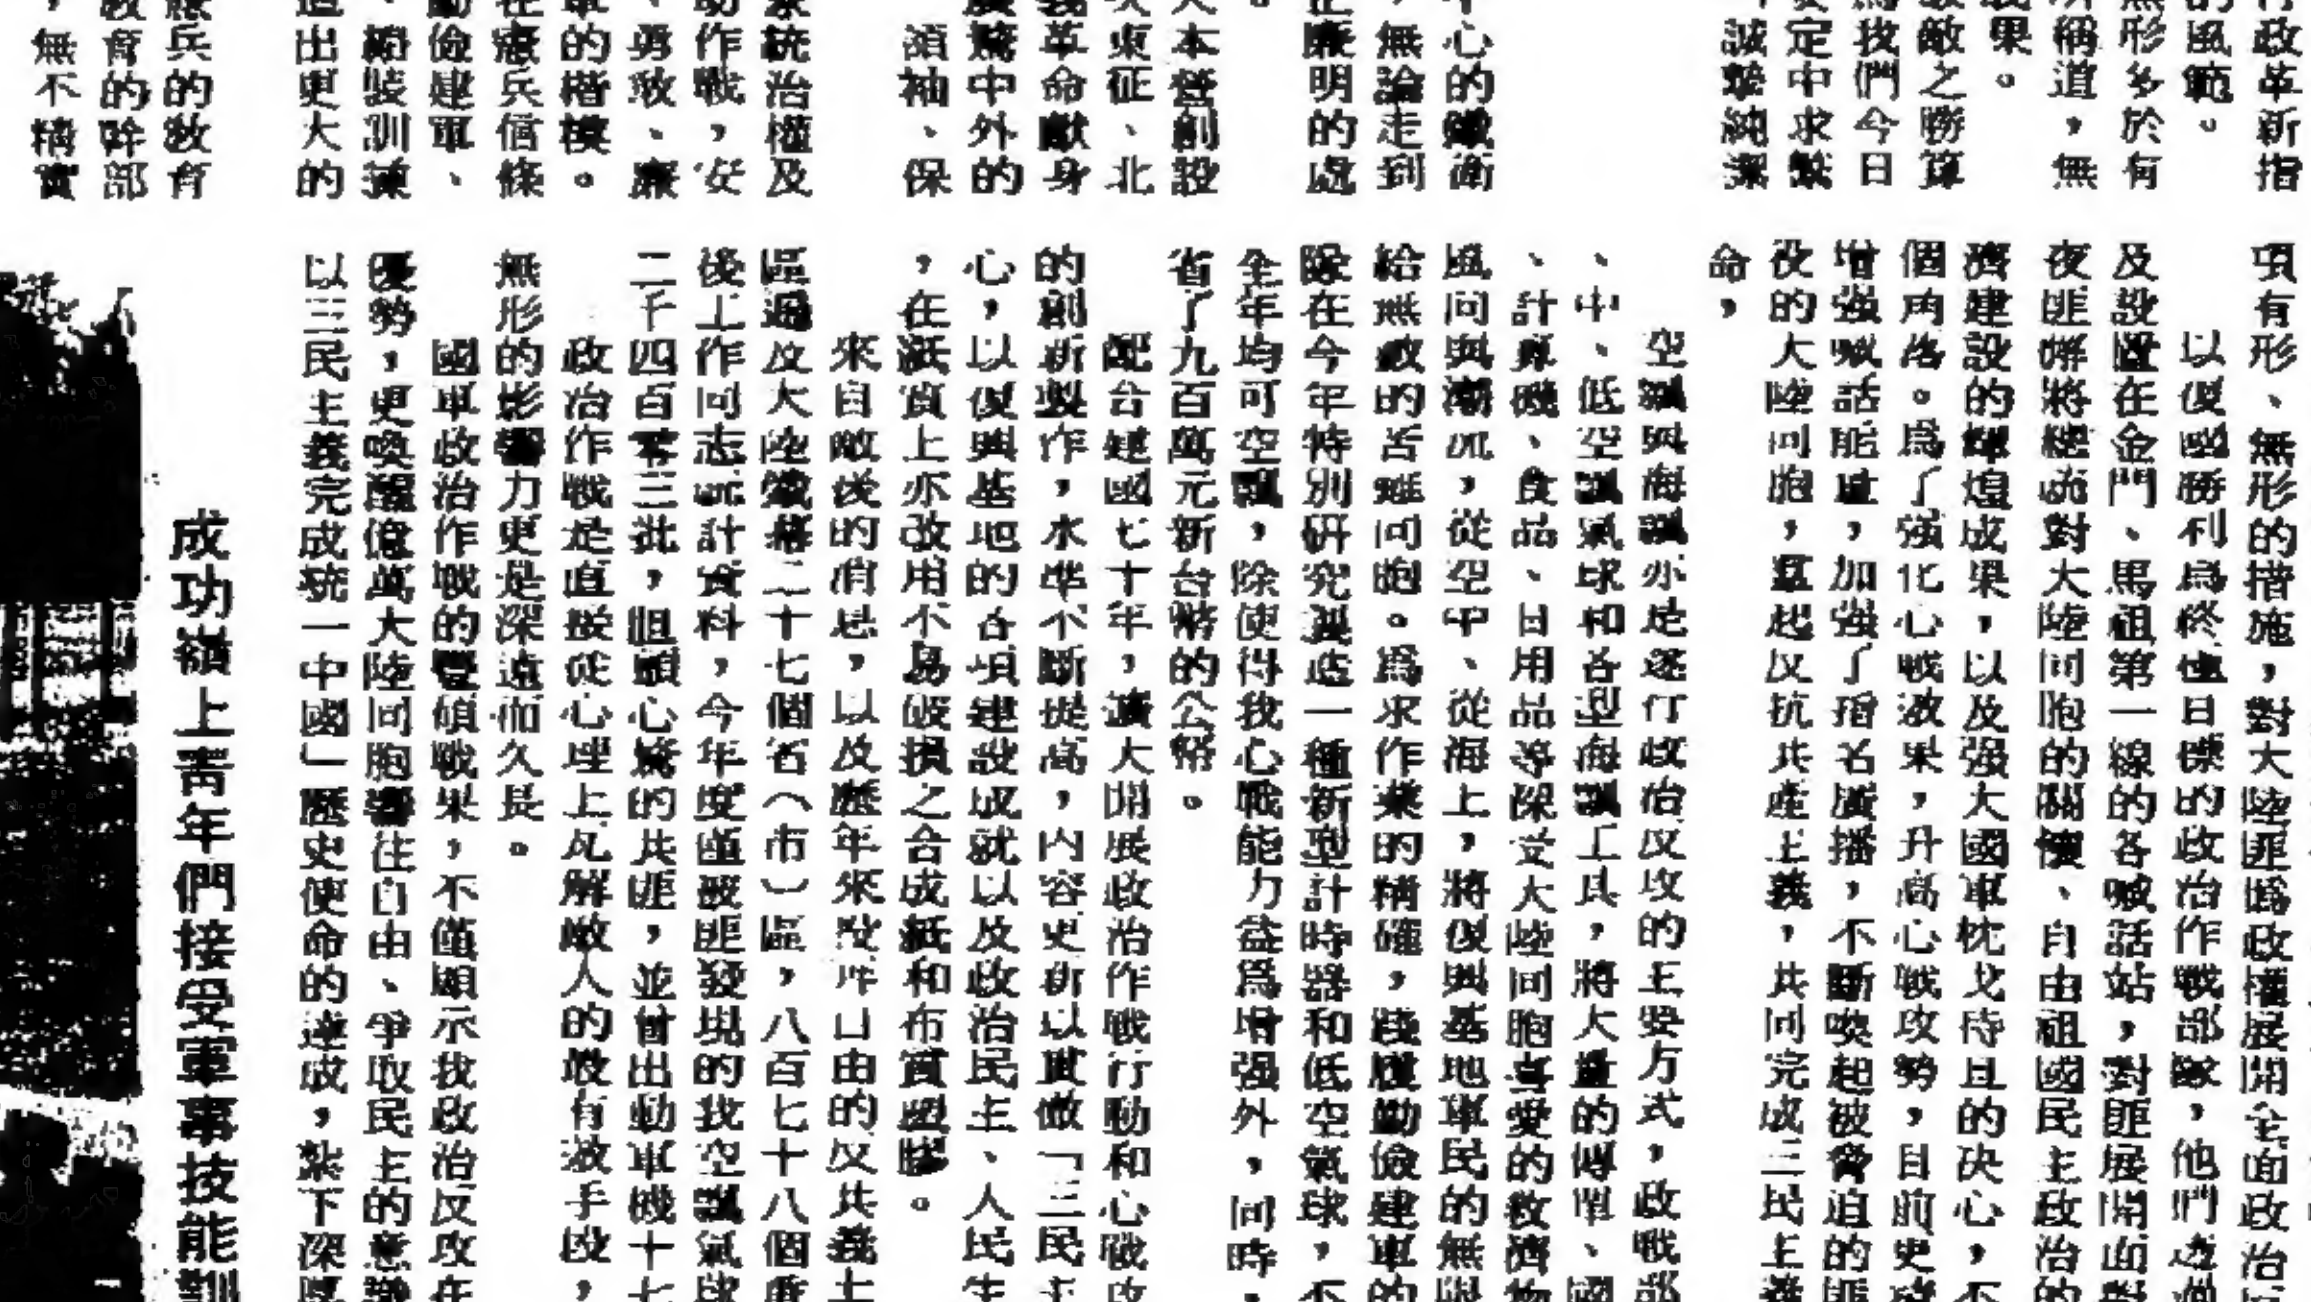 行政革新指
的風範。
無形多於有
所稱道，無
戰果。
敵之勝算
為我們今日
安定中求繁
誠摯純潔
中心的蟻
，無論走到
正廉明的處
大本營創設
東征、北
革命獻身
中外的
領袖、保
統治權及
助作戰，安
、勇敢、廉
軍的楷模。
在憲兵信條
勤儉建軍、
、精裝訓練
造出更大的
憲兵的教育
教育的幹部
，無不精實
項有形、無形的措施，對大陸匪偽政權展開全面政治
以復國勝利為終極目標的政治作戰部隊，他們透過
及設置在金門、馬祖第一線的各喊話站，對匪展開面對
夜匪解將總統對大陸同胞的關懷、自由祖國民主政治的
濟建設的輝煌成果，以及强大國軍枕戈待旦的决心，不
個角落。為了强化心戰效果，升高心戰攻勢，目前更
增强喊話能量，加强了指名廣播，不斷喚起被脅迫的匪
役的大陸同胞，羣起反抗共產主義，共同完成三民主義
命，
空飄與海飄亦是遂行政治反攻的主要方式，政戰部
、中、低空飄氣球和各型海飄工具，將大量的傳單、國
、計算機、食品、日用品等深受大陸同胞喜愛的救濟物
風向與潮汛，從空中、從海上，將復興基地軍民的無限
給無數的苦難同胞。為求作業的精確，踐履勤儉建軍的
隊在今年特別研究製造一種新型計時器和低空氣球，不
全年均可空飄，除使得我心戰能力益為增强外，同時，
省了九百萬元新台幣的公帑。
配合建國七十年，擴大開展政治作戰行動和心戰攻
的創新製作，水準不斷提高，內容更新以其做「三民主
心，以復興基地的各項建設成就以及政治民主、人民生
，在紙質上亦改用不易毀損之合成紙和布質塑膠。
來自敵後的消息，以及歷年來投奔自由的反共義士
區遍及大陸鐵幕二十七個省（市）區，八百七十八個
後工作同志統計資料，今年度匪發現的我空飄氣球
二千四百零三批，膽顫心驚的共匪，並曾出動軍機十七
政治作戰是直接從心理上瓦解敵人的最有效手段，
無形的影響力更是深遠而久長。
國軍政治作戰的豐碩戰果，不僅顯示我政治反攻在
優勢，更喚醒億萬大陸同胞嚮往自由、爭取民主的意識
以三民主義完成統一中國」歷史使命的達成，紮下深厚
成功嶺上青年們接受軍事技能訓